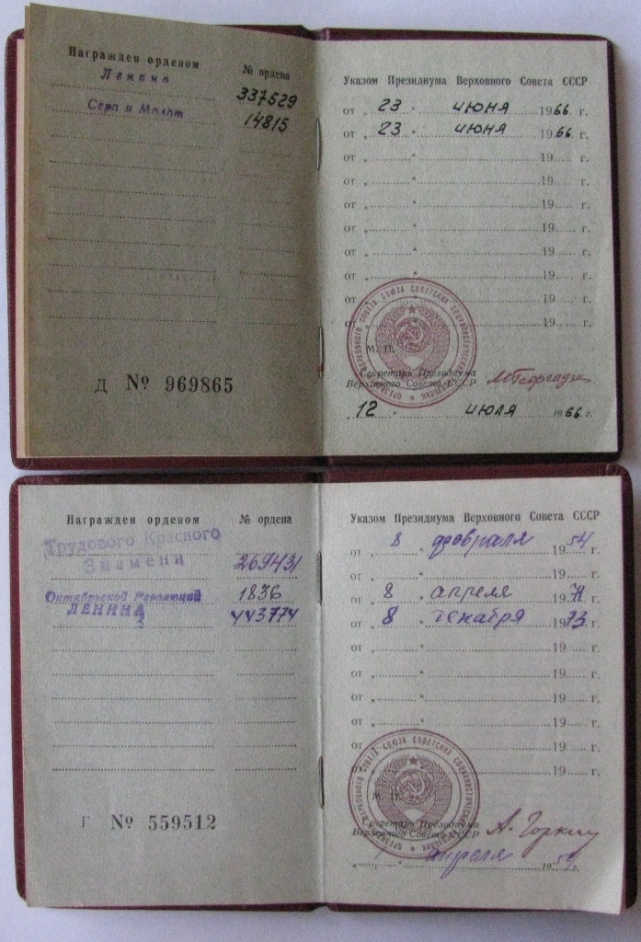 Награжден орденом № ордена
Ленина 337529
Серп и Молот 14815
Д № 969865
Указом Президиума Верховного Совета СССР
от „ 23 “ июня 1966 г.
от „ 23 “ июня 1966 г.
от „ “ 19 г.
от „ “ 19 г.
от „ “ 19 г.
от „ “ 19 г.
от „ “ 19 г.
от „ “ 19 г.
от „ “ 19 г.
от „ “ 19 г.
М. П.
Секретарь Президиума
Верховного Совета СССР
„ 12 “ июля 1966 г.
Награжден орденом № ордена
Трудового Красного
Знамени 269431
Октябрьской Революции 1836
ЛЕНИНА 443774
Г № 559512
Указом Президиума Верховного Совета СССР
от „ 8 “ февраля 1954 г.
от „ “ 19 г.
от „ 8 “ апреля 1971 г.
от „ 8 “ декабря 1973 г.
от „ “ 19 г.
от „ “ 19 г.
от „ “ 19 г.
от „ “ 19 г.
от „ “ 19 г.
от „ “ 19 г.
М. П.
Секретарь Президиума
Верховного Совета СССР А. Горкин
апреля 1954 г.